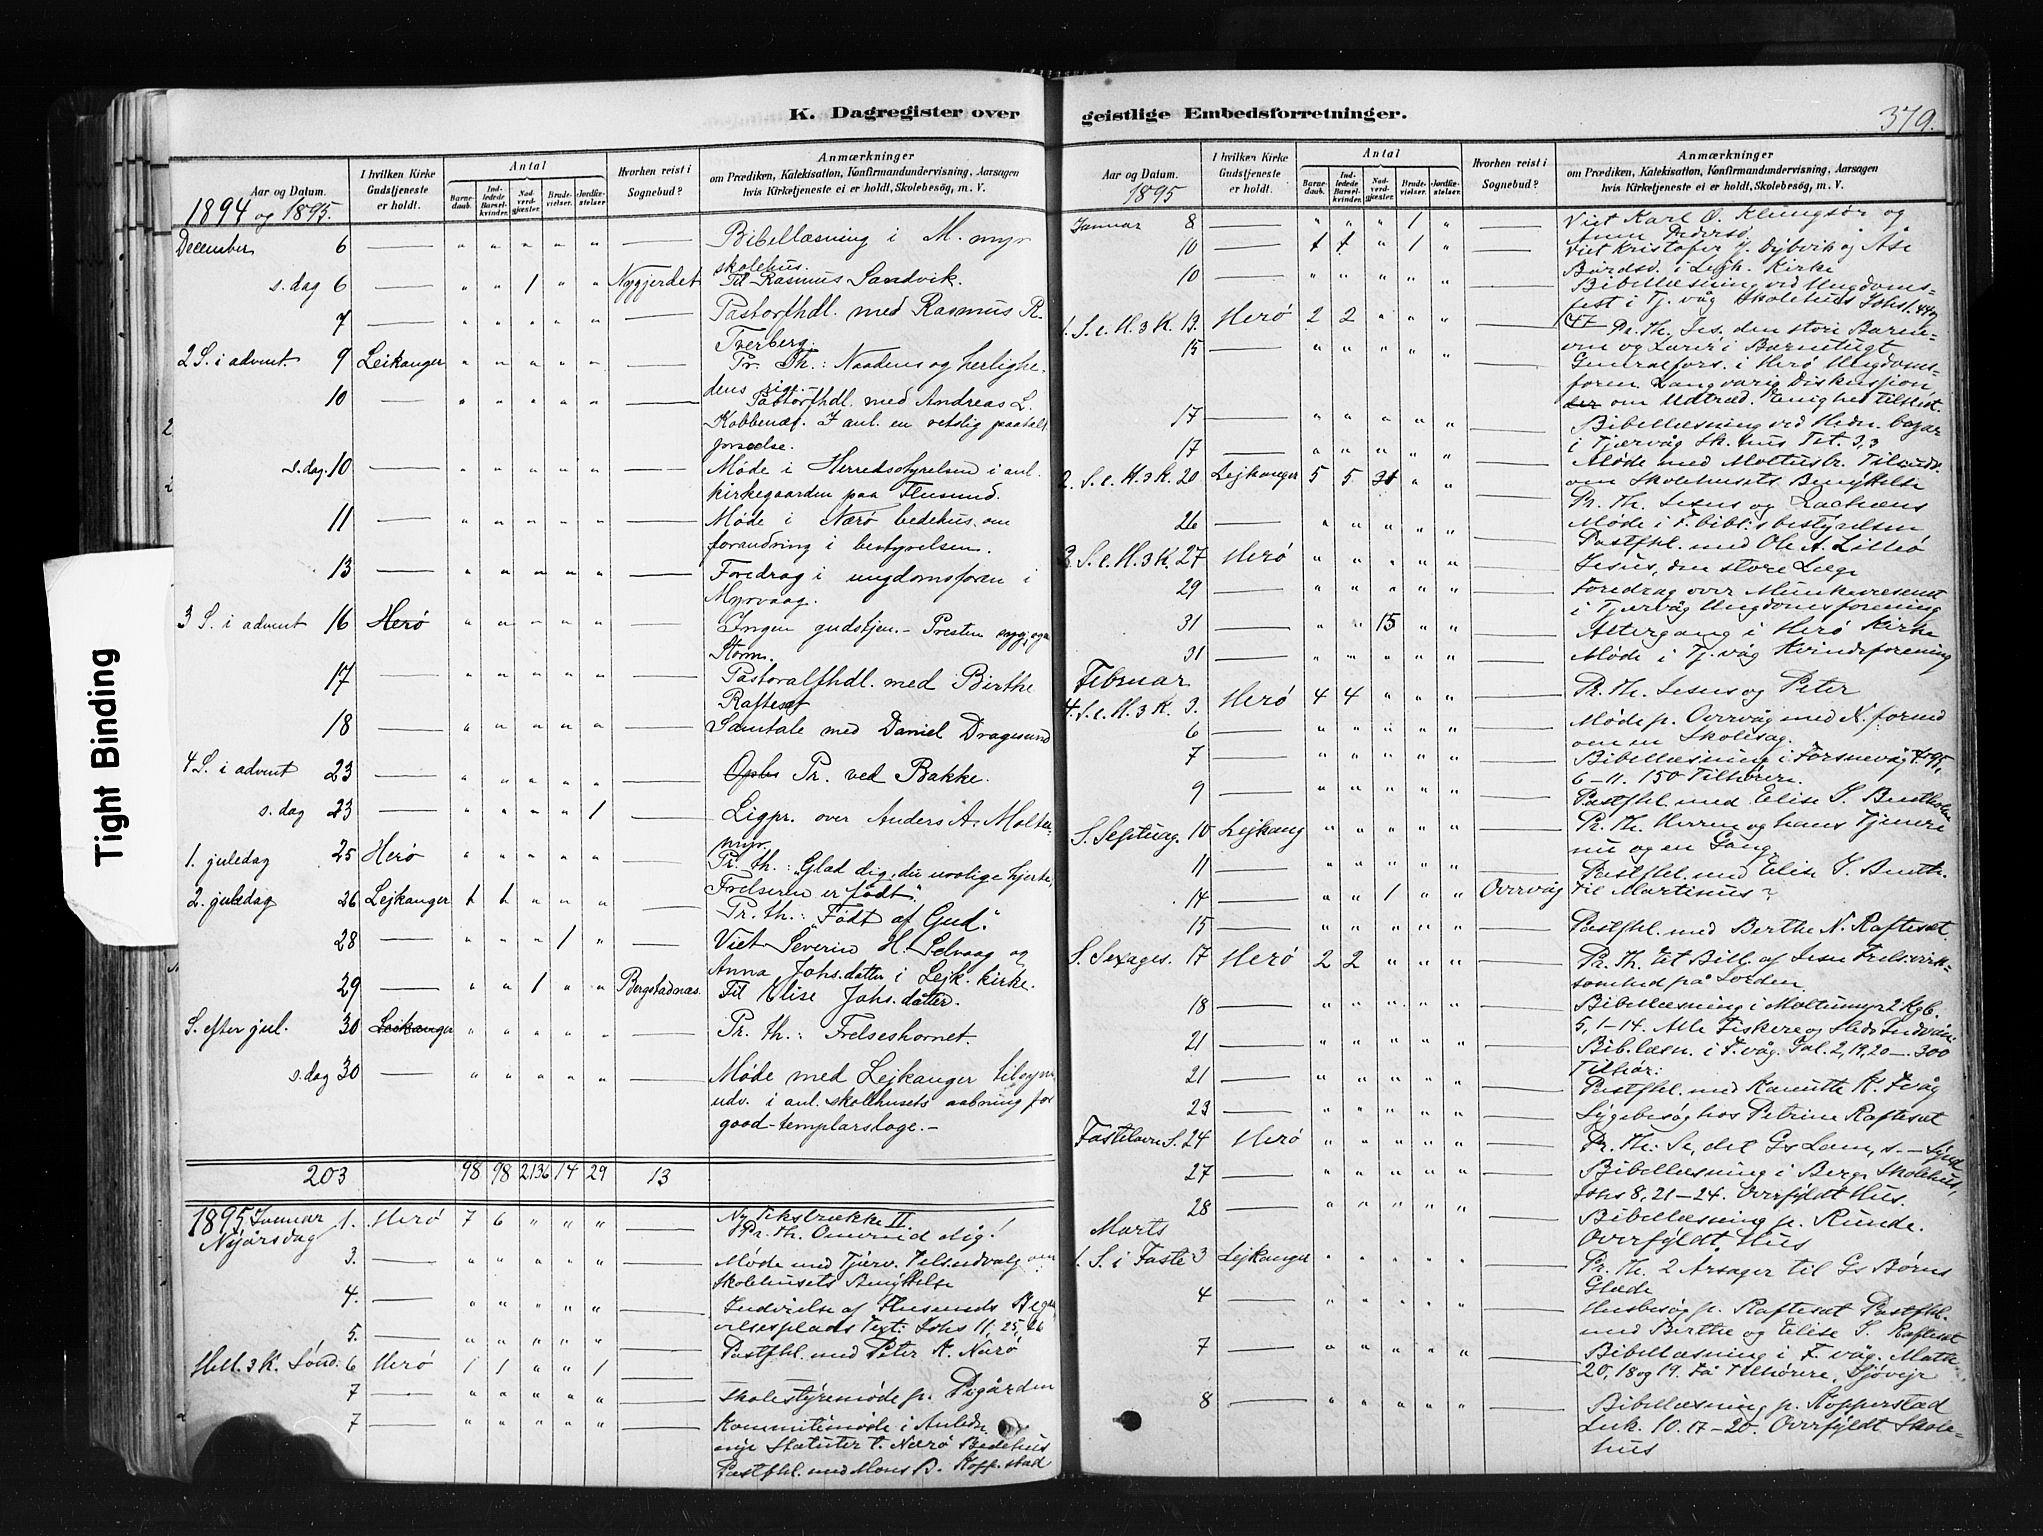 K. Dagregister over
Aar og Datum.
1894 og 1895.
I hvilken Kirke Gudstjeneste er holdt.
Antal
Barne-daab.
Ind-ledede Barsel-kvinder.
Nad-verd-gjæster.
Brude-vielser.
Jordfæ-stelser.
Hvorhen reist i Sognebud?
Anmærkninger
om Prædiken, Katekisation, Konfirmandundervisning, Aarsagen
hvis Kirketjeneste ei er holdt, Skolebesøg, m. V.
December 6 — " " " " " — Bibellæsning i M. myr
skolehus.
s. dag 6 — " " 1 " " Nygjerdet Til Rasmus Sandvik.
7 — " " " " " — Pastorfhdl. med Rasmus R.
Tverberg.
2 S. i advent 9 Leikanger " " " " " — Pr. Th.: Naadens og herlighe-
dens rige.
10 — " " " " " — Pastorfhdl. med Andreas L.
Kobbenæs. I anl. en
s. dag 10 — " " " " " — Møde i Herredsstyrelsen i anl.
kirkegaarden paa Flusund.
11 — " " " " " — Møde i Nærø bedehus om
forandring i bestyrelsen.
13 — " " " " " — Foredrag i ungdomsforen i
Myrvaag.
3 S. i advent 16 Herø " " " " " — Ingen gudstjen. – Presten syg, ogsa
Storm.
17 — " " " " " — Pastoralfhdl. med Birthe
Raftesæt
18 — " " " " " — Samtale med Daniel Dragesund
4 S. i advent 23 — " " " " " — Pr. ved Bakke.
s. dag 23 — " " " " 1 — Ligpr. over Anders A. Molte-
myr.
1. juledag 25 Herø " " " " " — Pr. th.: "Glæd dig, du urolige hjerte,
Frelseren er født".
2. juledag 26 Lejkanger 1 1 " " " — Pr. th.: "Født af Gud".
28 — " " " 1 " — Viet Severin H. Selvaag og
Anna Johs.datter i Lejk. kirke.
29 — " " 1 " " Bergstadnæs. Til Elise Johs.datter.
S. efter jul. 30 Leikanger " " " " " — Pr. th.: Frelseshornet.
s. dag 30 — " " " " " — Møde med Lejkanger tilsyns-
udv. i anl. skolehusets aabning for
good-templarsloge. –
203 98 98 2136 14 29 13
1895 Januar 1. Herø 7 6 " " " — Ny Tekstrække II.
Nyårsdag Pr. th. Omvend dig!
3. — " " " " " — Møde med Tjørv. Tils.udvalg om
Skolehusets Benyttelse
4. — " " " " " — Indvielse af Flusunds Begra-
velsesplads Text: Johs 11, 25, 26
5. — " " " " " — Pastfhl. med Peter A. Nærø
Hell. 3 K. Sønd. 6 Herø 1 1 " " 1
7 — " " " " " — Skolestyremøde p. Pigården
7 — " " " " " — Kommitémøde i Anledn.
nye Statuter t. Nærø Bedehus
Pastfhl. med Mons B. Koppstad
geistlige Embedsforretninger.
379.
Aar og Datum.
1895
I hvilken Kirke Gudstjeneste er holdt.
Antal
Barne-daab.
Ind-ledede Barsel-kvinder.
Nad-verd-gjæster.
Brude-vielser.
Jordfæ-stelser.
Hvorhen reist i Sognebud?
Anmærkninger
om Prædiken, Katekisation, Konfirmandundervisning, Aarsagen
hvis Kirketjeneste ei er holdt, Skolebesøg, m. V.
Januar 8 — " " " 1 " — Viet Karl O. Klungsør og
Anne Pedersd.
10 — 1 1 " 1 " — Viet Kristofer J. Dybvik og Åse
Bårdsd. i Lejk. Kirke
10 — " " " " " — Bibellæsning ved Ungdoms-
fest i Tj.våg Skolehus Johs 1, 44-
47
1. S. e. H. 3 K. 13. Herø 2 2 " " " — Pr. Th. Jes. den store Barne-
ven og Lærer i Barnetugt
15 — " " " " " — Generalfors. i Herø Ungdoms-
foren. Langvarig Diskussion
om Udtræd. Enighed tilsidst.
17 — " " " " " — Bibellæsning ved Hedn. bazar
i Tjørvåg Sk. hus Tit. 3, 3
17 — " " " " " — Møde med Moltustr. Tilsudv.
om Skolehusets Benyttelse
2. S. e. H. 3 K. 20 Lejkanger 5 5 31 " " — Pr. Th. Jesus og Zachæus
26 — " " " " " — Møde i F.bibl.s bestyrelsen
Pastfhl. med Ole A. Lillerø
3. S. e. H. 3 K. 27 Herø " " " " " — Jesus, den store Læge
29 — " " " " " — Foredrag over Munkevæsenet
i Tjørvåg Ungdomsforening
31 — " " 15 " " — Altergang i Herø Kirke
31 — " " " " " — Møde i Tj. våg Kvindeforening
Februar
4. S. e. H. 3 K. 3. Herø 4 4 " " " — Pr. Th. Jesus og Peter
6 — " " " " " — Møde p. Overvåg med N. formd
om en Skolesag.
7 — " " " " " — Bibellæsning i Fosnevåg
6-11. 150 Tilhørere.
9 — " " " " " — Pastfhl. med Elise J.
S. Septuag. 10 Lejkang " " " " " — Pr. Th. Herren og hans Tjenere
nu og en Gang
11 — " " " " " — Pastfhl. med Elise J.
14 — " " 1 " " Overvåg til Martinus?
15 — " " " " " — Pastfhl. med Berthe N. Raftesæt.
S. Sexages. 17 Herø 2 2 " " " — Pr. Th. Et Bill. af Jesu Frels.virk-
somhed på Jorden
18 — " " " " " — Bibellæsning i Moltumyr 2 Kgb.
5, 1-14. Alle Fiskere og
21 — " " " " " — Bib.læsn. i F.våg. Gal. 2, 19, 20 — 300
Tilhør:
21 — " " " " " — Pastfhl. med Kanutte K. F.våg
23 — " " " " " — Sygebesøg hos Petrine Raftesæt
Fastelavns S. 24 Herø " " " " " — Pr. Th: Se, det Gs Lam, s. –
27 — " " " " " — Bibellæsning i Berge Skolehus,
Johs 8, 21-24. Overfyldt Hus.
28 — " " " " " — Bibellæsning p. Runde.
Overfyldt Hus
Marts
1. S. i Faste 3 Lejkanger " " " " " — Pr. Th. 2 Årsager til Gs Børns
Glæde
4 — " " " " " — Husbesøg p. Raftesæt Pastfhl.
med Berthe og Elise J. Raftesæt
7 — " " " " " — Bibellæsning i F.våg. Math.
20, 18 og 19. Få Tilhørere, Sjøvejr
8 — " " " " " — Bibellæsning p. Kopperstad
Luk. 10. 17-20. Overfyldt Skole-
hus
Tight Binding